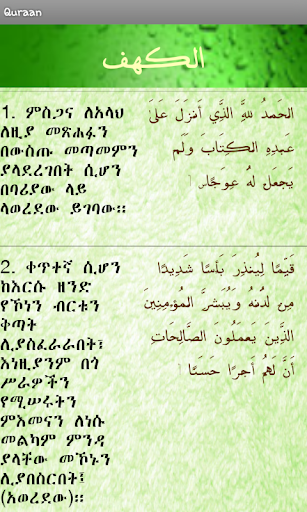 Quraan
الكهف
1. ምስጋና ለአላህ
ለዚያ መጽሐፉን
በውስጡ መጣመምን
ያላደረገበት ሲሆን
በባሪያው ላይ
ላወረደው ይገባው፡፡
الحَمدُ لِلَّهِ الَّذِي أَنزَلَ عَلَىٰ
عَبدِهِ الكِتَابَ وَلَم
يَجعَل لَهُ عِوَجًا
2. ቀጥተኛ ሲሆን
ከእርሱ ዘንድ
የኾነን ብርቱን
ቅጣት
ሊያስፈራራበት፤
እነዚያንም በጎ
ሥራዎችን
የሚሠሩትን
ምእመናን ለነሱ
መልካም ምንዳ
ያላቸው መኾኑን
ሊያበስርበት፤
(አወረደው)፡፡
قَيِّمًا لِيُنذِرَ بَأسًا شَدِيدًا
مِن لَدُنهُ وَيُبَشِّرَ المُؤمِنِينَ
الَّذِينَ يَعمَلُونَ الصَّالِحَاتِ
أَنَّ لَهُم أَجرًا حَسَنًا